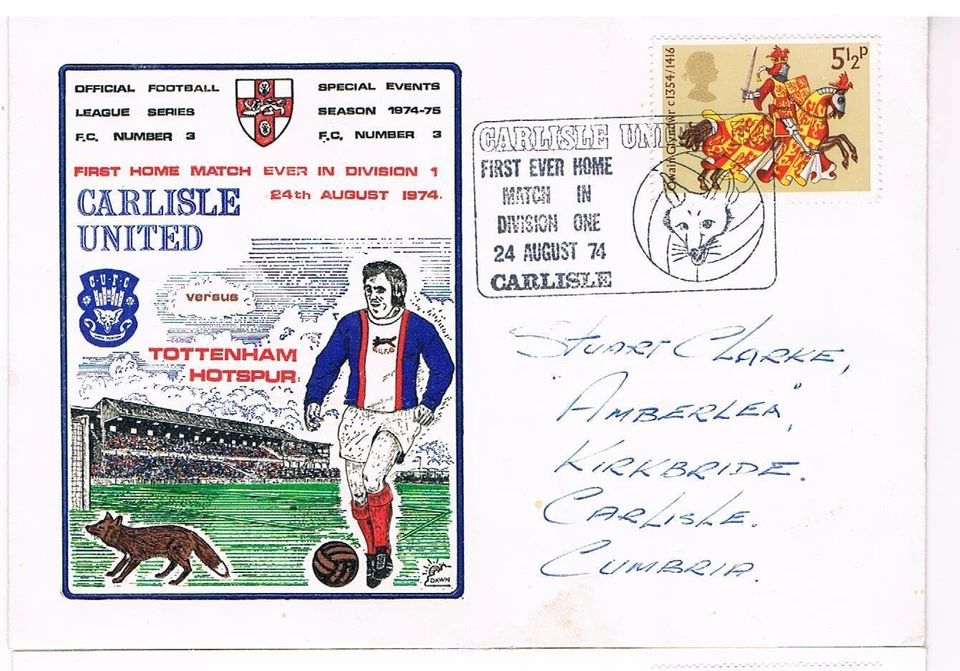 OFFICIAL FOOTBALL
LEAGUE SERIES
F.C. NUMBER 3
SPECIAL EVENTS
SEASON 1974-75
F.C. NUMBER 3
FIRST HOME MATCH EVER IN DIVISION 1
24th AUGUST 1974.
CARLISLE
UNITED
C.U.F.C
versus
TOTTENHAM
HOTSPUR
DAWN
CARLISLE UNI
FIRST EVER HOME
MATCH IN
DIVISION ONE
24 AUGUST 74
CARLISLE
5½P
Owain Glyndwr c1354/1416
STUART CLARKE,
AMBERLEA,"
KIRKBRIDE.
CARLISLE.
CUMBRIA.